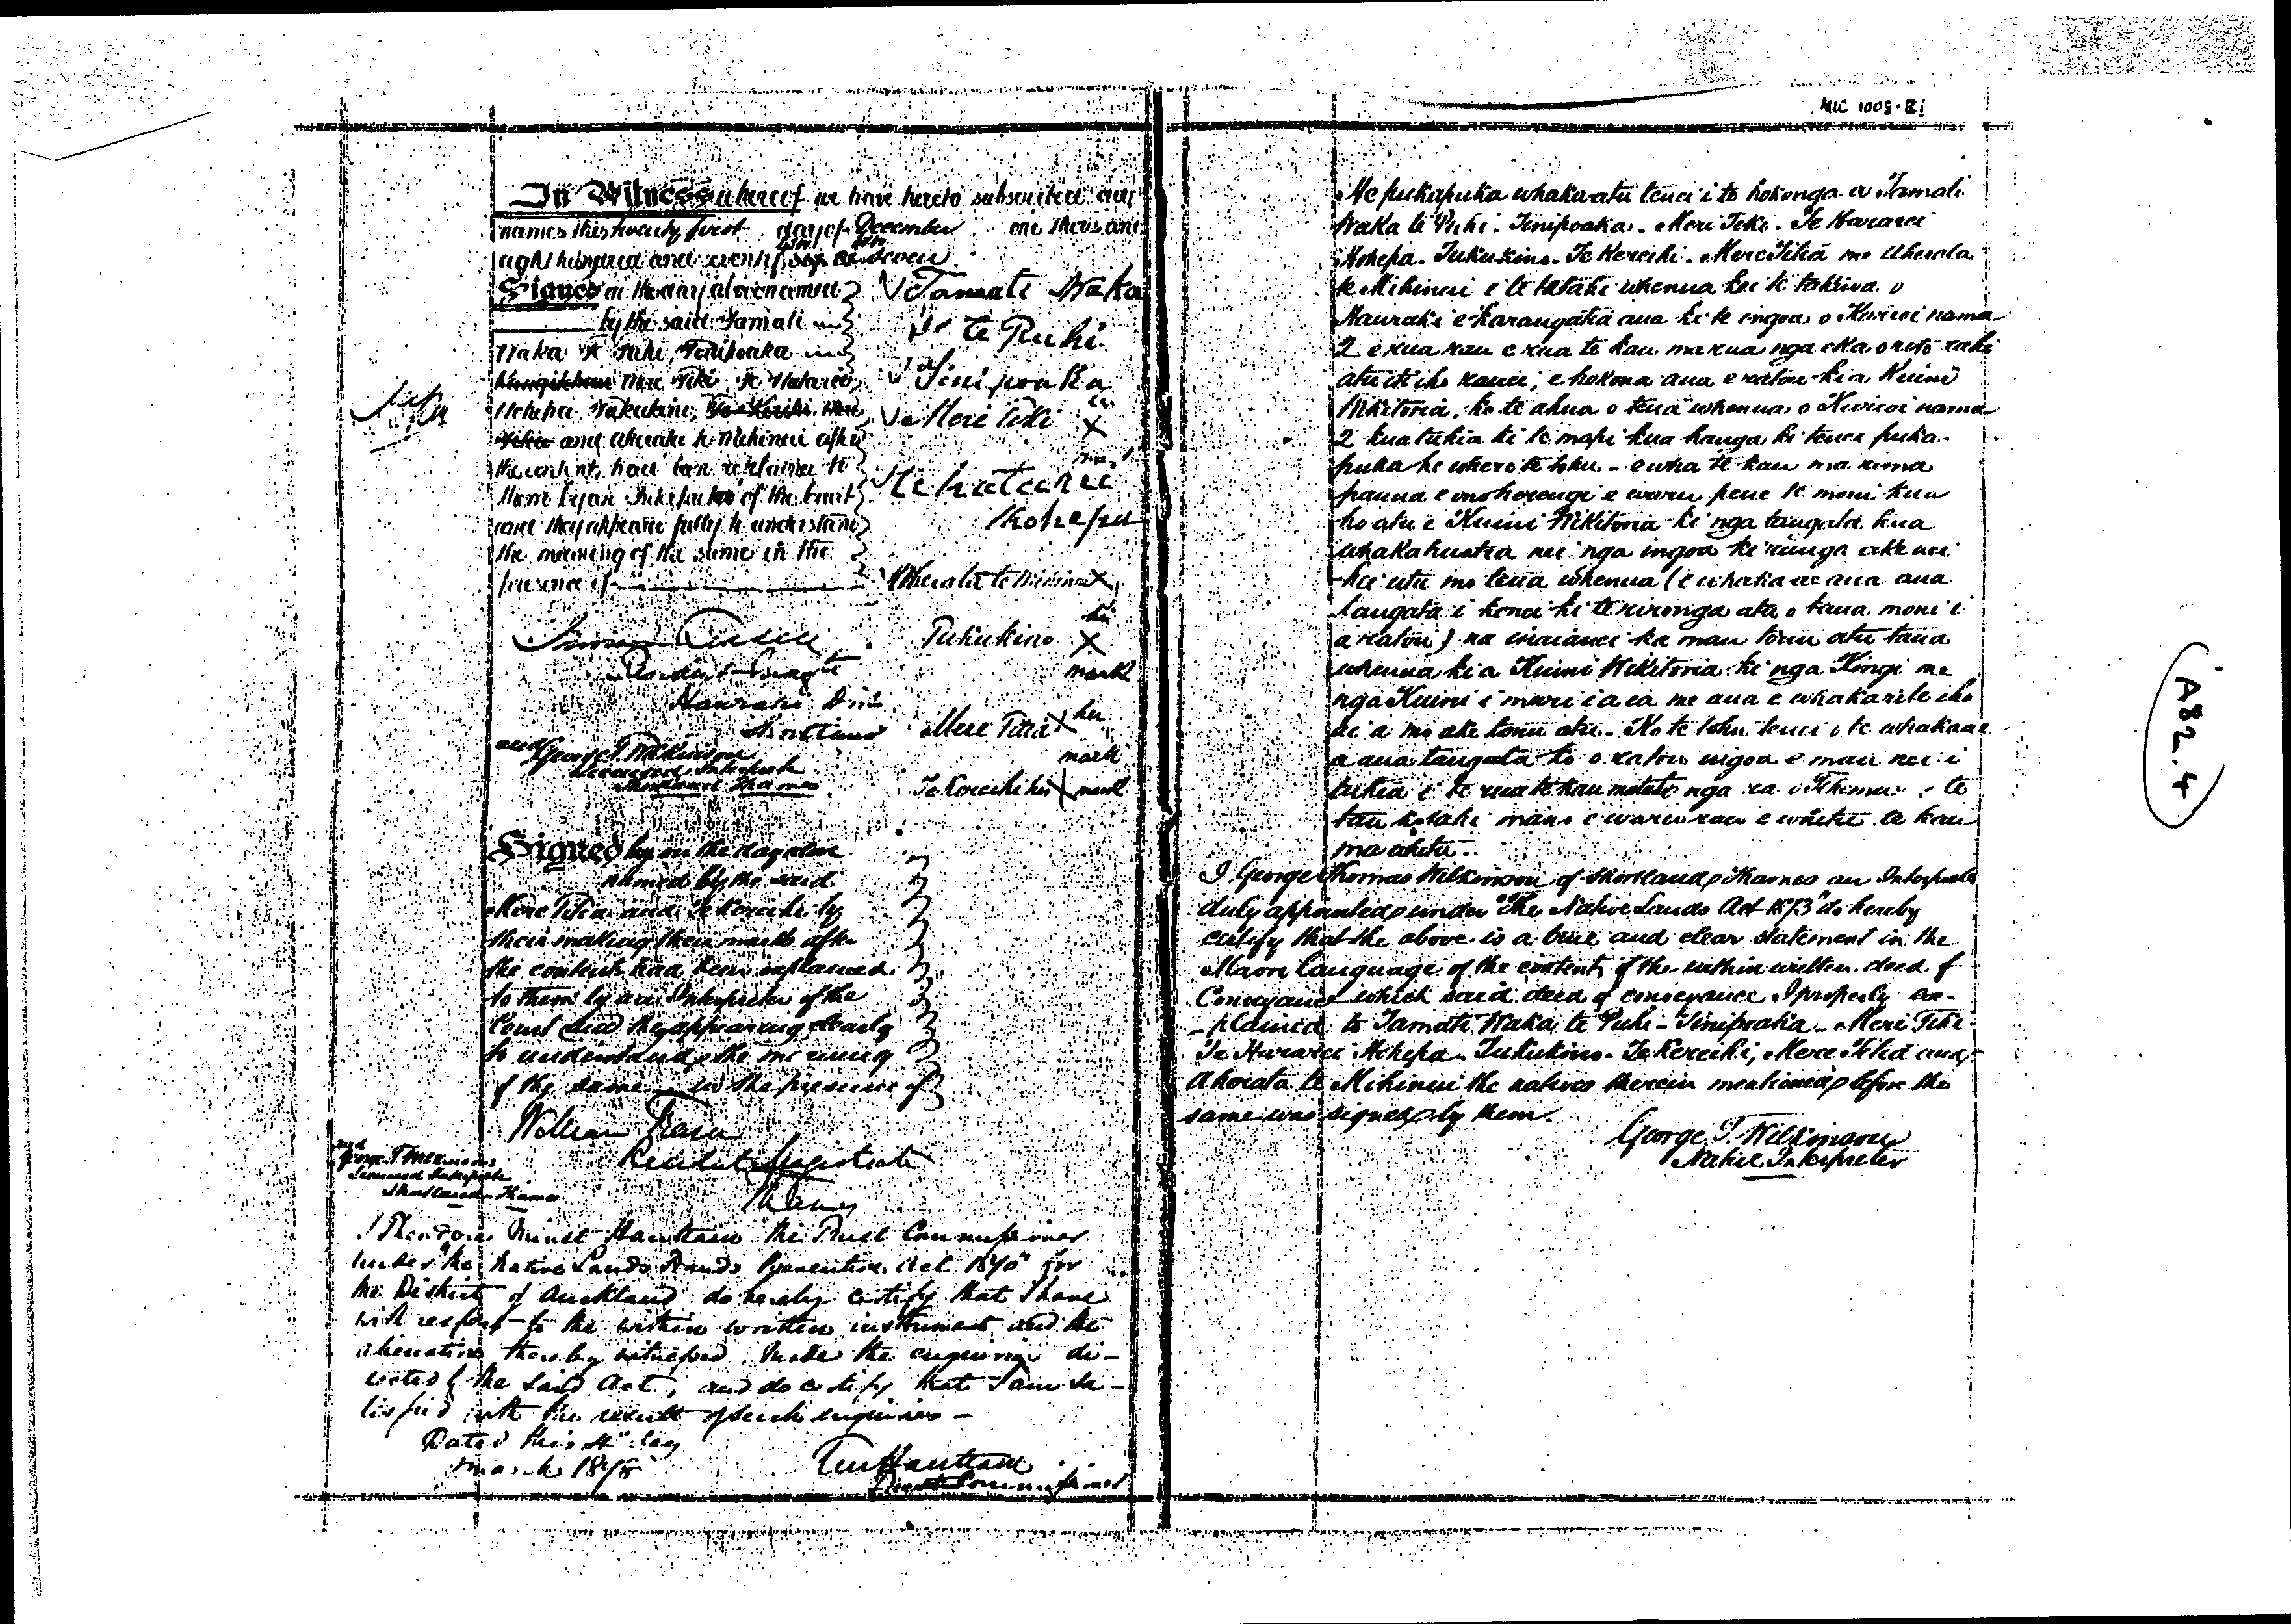 MLC 1008-Bi
In Witness whereof we have hereto subscribed our
names this twenty first day of December one thousand
eight hundred and seventy seven
Signed on the day above named
by the said Tamati
Waka te Puhi, Tinipoaka
Meri Teki, Te Hararei
Hohepa Tukukino,
and Aherata te Mihinui after
the contents had been explained to
them by an Interpreter of the Court
and they appeared fully to understand
the meaning of the same in the
presence of
Resident Mag
Hauraki Dist
Shortland
and George T. Wilkinson
Licensed Interpreter
Shortland Thames
Tamati Waka
te Puhi
Tinipoaka
Meri Teki X
Hohepa
Aherata te Mihinui X
Tukukino his X mark
Mere Titia X her mark
Te Kereihi his X mark
Signed by on the day above
named by the said
Mere Titia and Te Kereihi by
their making their marks after
the contents had been explained
to them by an Interpreter of the
Court and they appearing clearly
to understand the meaning
of the same in the presence of
William Fraser
Resident Magistrate
Thames
and
George T. Wilkinson
Licensed Interpreter
Shortland Thames
I Theodore Minet Haultain the Trust Commissioner
under "the Native Lands Frauds Prevention Act 1870" for
the District of Auckland do hereby certify that I have
with respect to the within written instrument and the
alienation thereby witnessed, made the enquiries di-
rected by the said Act, and do certify that I am sa-
tisfied with the result of such enquiries -
Dated this 4th day
March 1878
T M Haultain
Trust Commissioner
He pukapuka whakaatu tenei i to hokonga a Tamati
Waka te Puhi - Tinipoaka - Meri Teki - Te Hararei
Hohepa - Tukukino - Te Kereihi - Mere Titia me Aherata
te Mihinui i te tetahi whenua kei te takiwa o
Hauraki e karangatia ana ki te ingoa o
2 e rua rau e rua te kau ma rua nga eka o roto rahi
atu iti iho ranei, e hokona ana e ratou kia Kuini
Wikitoria, ko te ahua o tena whenua o nama
2 kua tuhia ki te mapi kua hanga ki tenei puka-
puka he whero te tohu - e wha te kau ma rima
pauna e ono herengi e waru pene te moni kua
hoatu e Kuini Wikitoria ki nga tangata kua
whakahuatia nei nga ingoa ki runga ake nei
hei utu mo tena whenua (e whakaae ana aua
tangata i konei ki te rironga atu o taua moni i
a ratou) na inaianei ka mau tonu atu taua
whenua kia Kuini Wikitoria ki nga Kingi me
nga Kuini i muri i a ia me ana e whakarite iho
ai a mo ake tonu atu - Ko te tohu tenei o te whakaae
a aua tangata ko o ratou ingoa e mau nei i
tuhia i te rua te kau ma tahi nga ra o Tihema o te
tau kotahi mano e waru rau e whitu te kau
ma whitu.
I George Thomas Wilkinson of Shortland Thames an Interpreter
duly appointed under "The Native Lands Act 1873" do hereby
certify that the above is a true and clear statement in the
Maori language of the contents of the within written deed of
Conveyance which said deed of conveyance I properly ex-
-plained to Tamati Waka te Puhi - Tinipoaka - Meri Teki -
Te Hararei Hohepa - Tukukino - Te Kereihi, Mere Titia and
Aherata te Mihinui the natives therein mentioned before the
same was signed by them.
George T. Wilkinson
Native Interpreter
A82.4